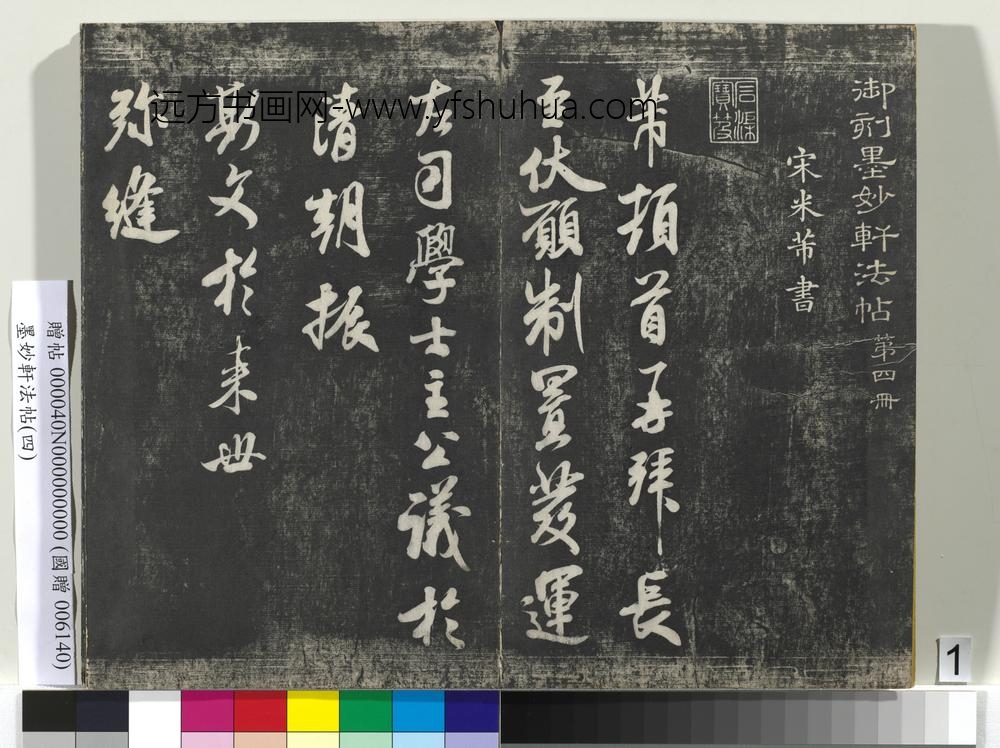 御刻墨妙軒法帖 第四冊
宋米芾書
石渠寶笈
芾頓首再拜長
至伏願制置發運
左司學士主公議於
清朝振
斯文於来世
弥縫
远方书画网-www.yfshuhua.com
贈帖 000040N000000000 (國贈 006140)
墨妙軒法帖(四)
1